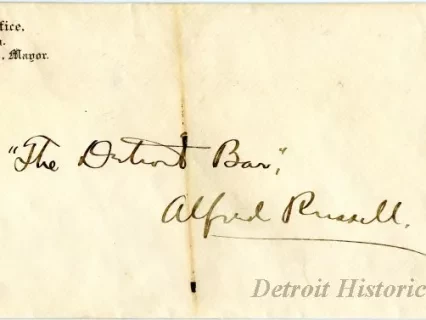 fice,
., Mayor.
"The Detroit Bar",
Alfred Russell.
Detroit Historic